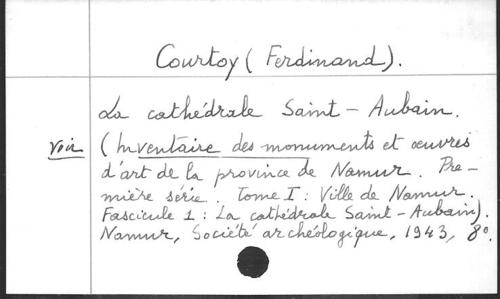 Courtoy (Ferdinand).
La cathédrale Saint-Aubain.
voir (Inventaire des monuments et œuvres
d'art de la province de Namur. Pre-
mière série. Tome I : Ville de Namur.
Fascicule 1 : La cathédrale Saint-Aubain).
Namur, Société archéologique, 1943, 8º.